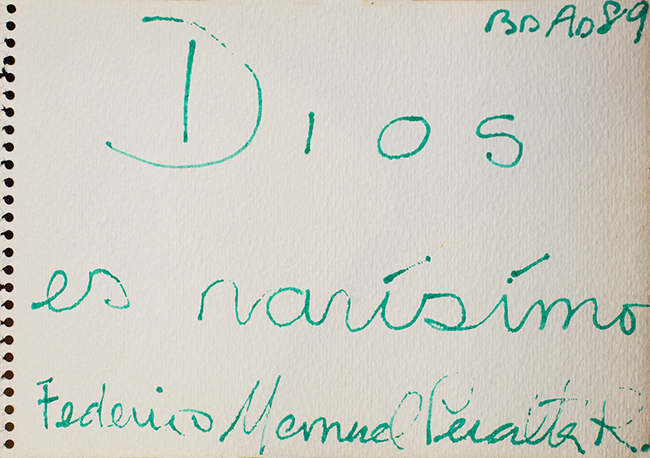 BDAD89
Dios
es rarísimo
Federico Manuel Peralta R.